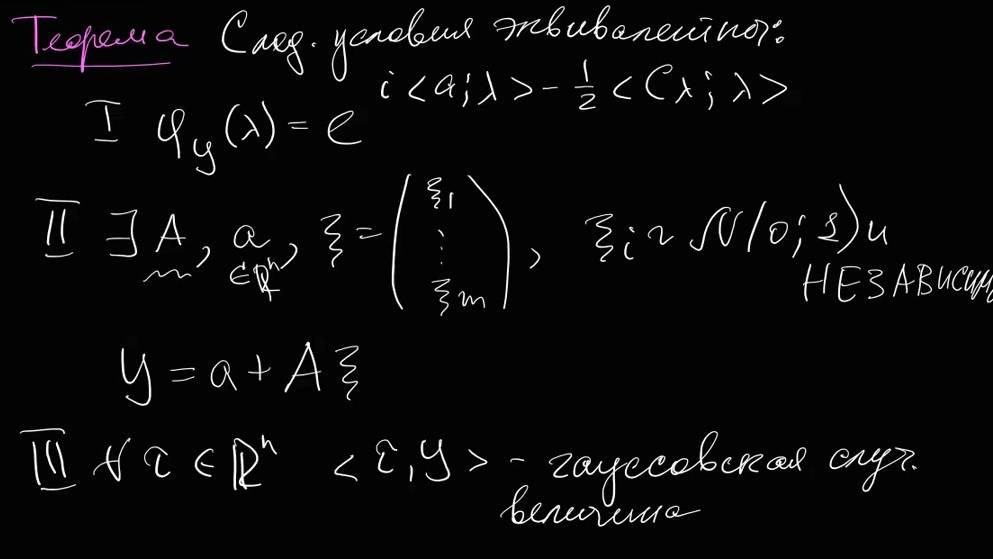 Теорема След. условия эквивалентны:
I φ_y(λ) = e^{i<a;λ> - 1/2 <Cλ;λ>}
II ∃ A, a ∈ ℝⁿ, ξ = (ξ₁ ⋮ ξm), ξi ~ N(0;1) и
НЕЗАВИСИМ
y = a + Aξ
III ∀ τ ∈ ℝⁿ <τ,y> - гауссовская случ.
величина